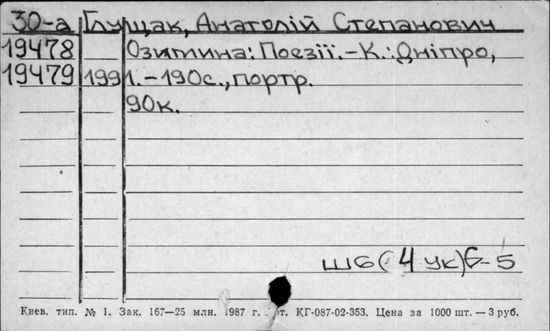 30-а Глущак, Анатолій Степанович
19478 Озимина: Поезії.-К.: Дніпро,
19479 1991.-190с., портр.
90к.
Ш6(4УК)6-5
Киев. тип. № 1. Зак. 167—25 млн. 1987 г. КГ-087-02-353. Цена за 1000 шт. — 3 руб.